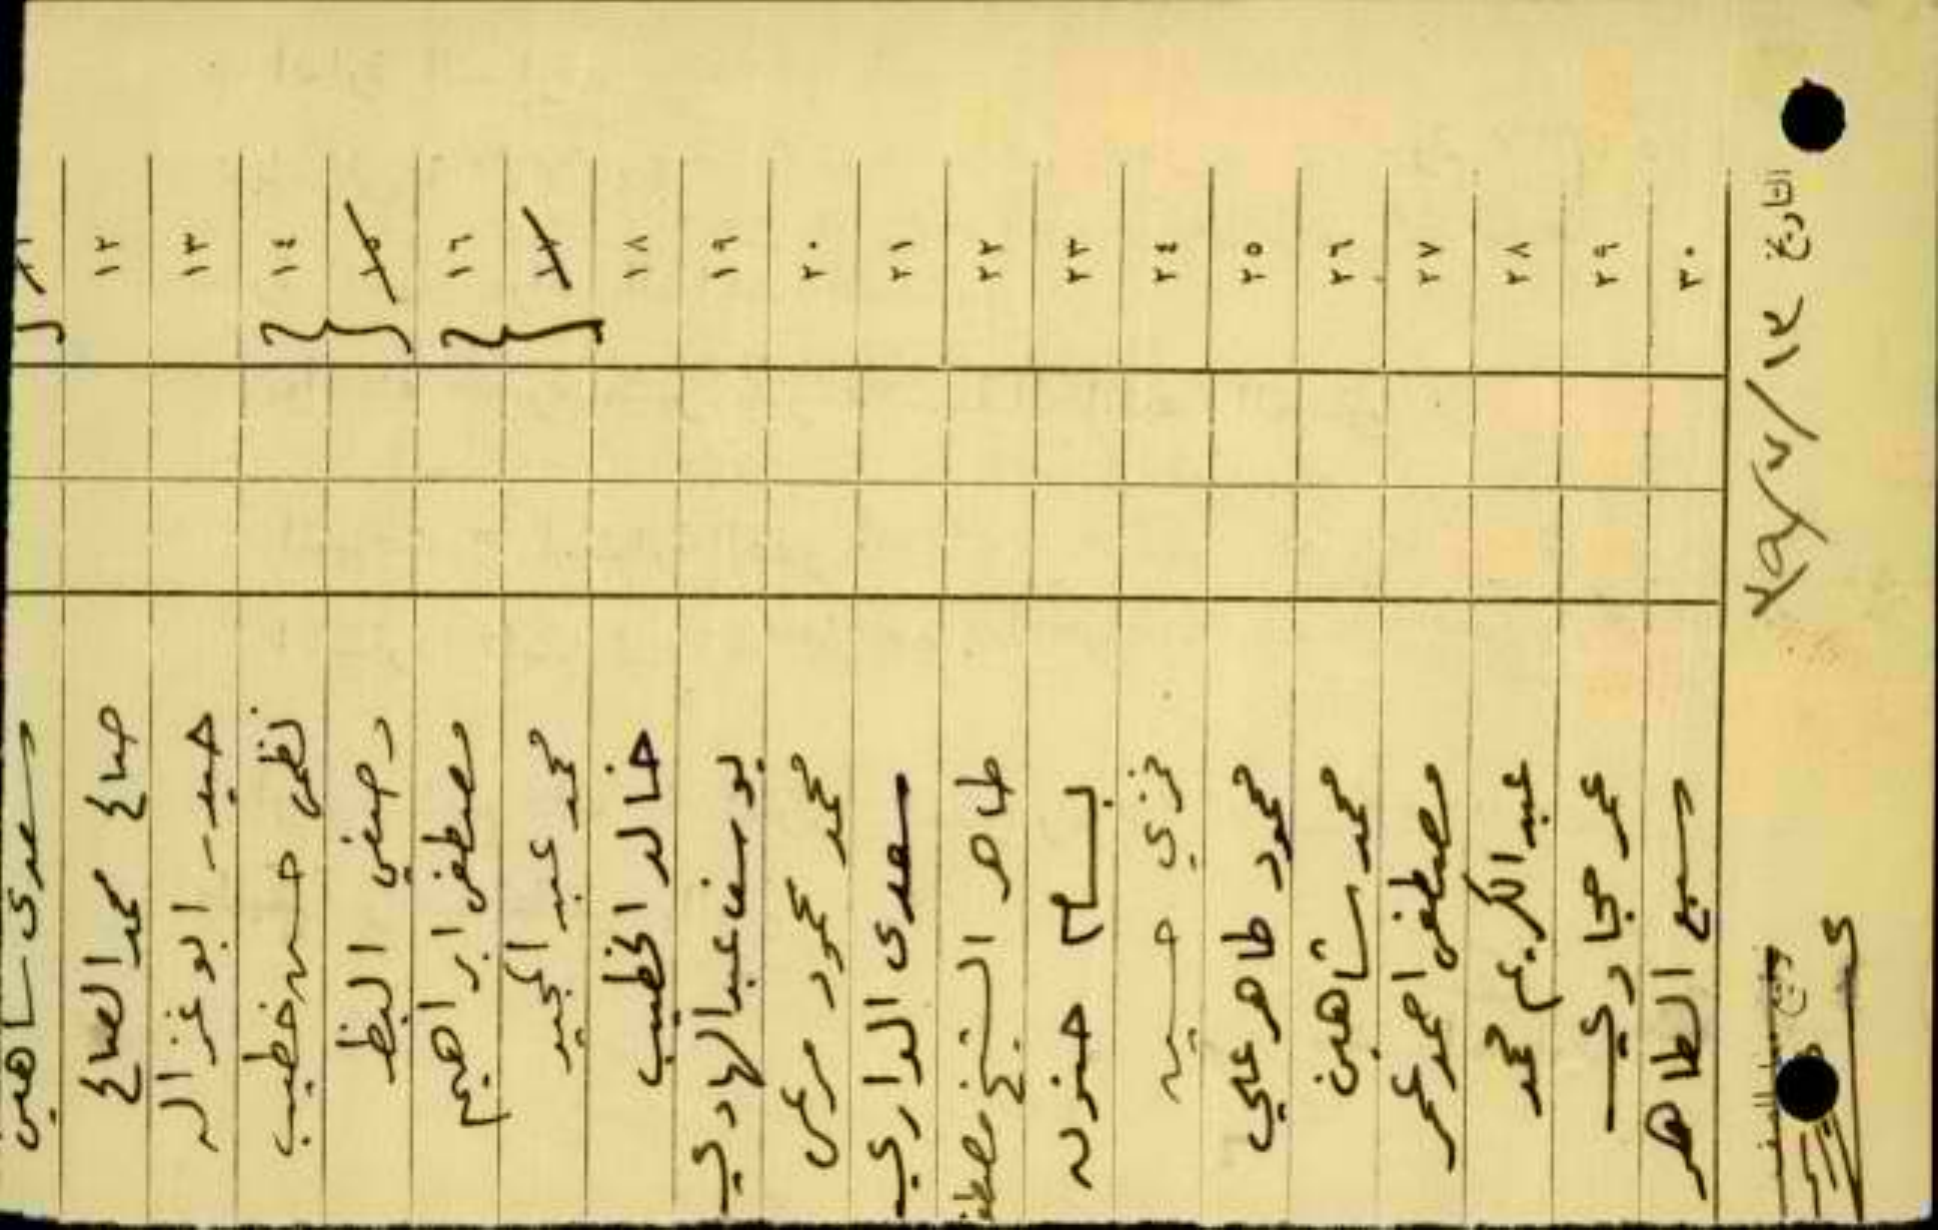 سعدى شاهين
١٢ صالح محمد الصالح
١٣ حيدر ابو غزاله
١٤ نظمي حسن خطيب
١٥ وصفي البظ
١٦ مصطفى ابراهيم
١٧ محمد عبد المجيد
١٨ خالد الخطيب
١٩ يوسف عبد الهادي
٢٠ محمد محمود مرعي
٢١ سعدى الداري
٢٢ طاهر الشيخ مصطفى
٢٣ بسام
٢٤ رمزي
٢٥ محمود طاهر علي
٢٦ محمد شاهين
٢٧ مصطفى احمد عمر
٢٨ عبد الكريم محمد
٢٩ عمر حجازي
٣٠ سميح الطاهر
التاريخ